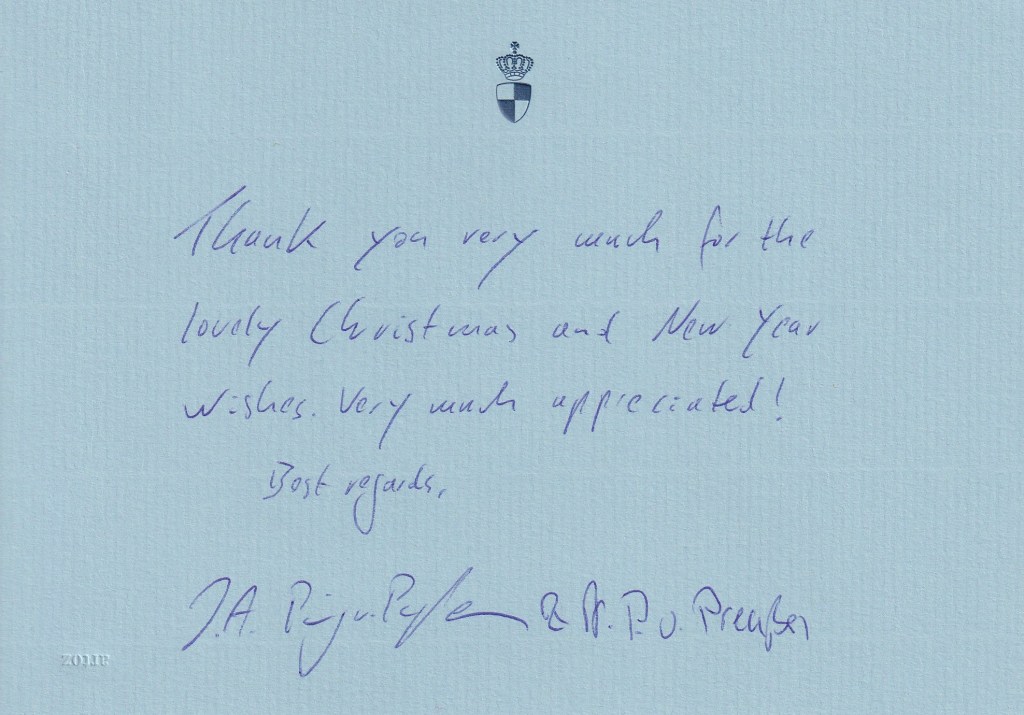 Thank you very much for the
lovely Christmas and New Year
wishes. Very much appreciated!
Best regards,
J.A. Prinz v. Preußen & Pr. P. v. Preußen